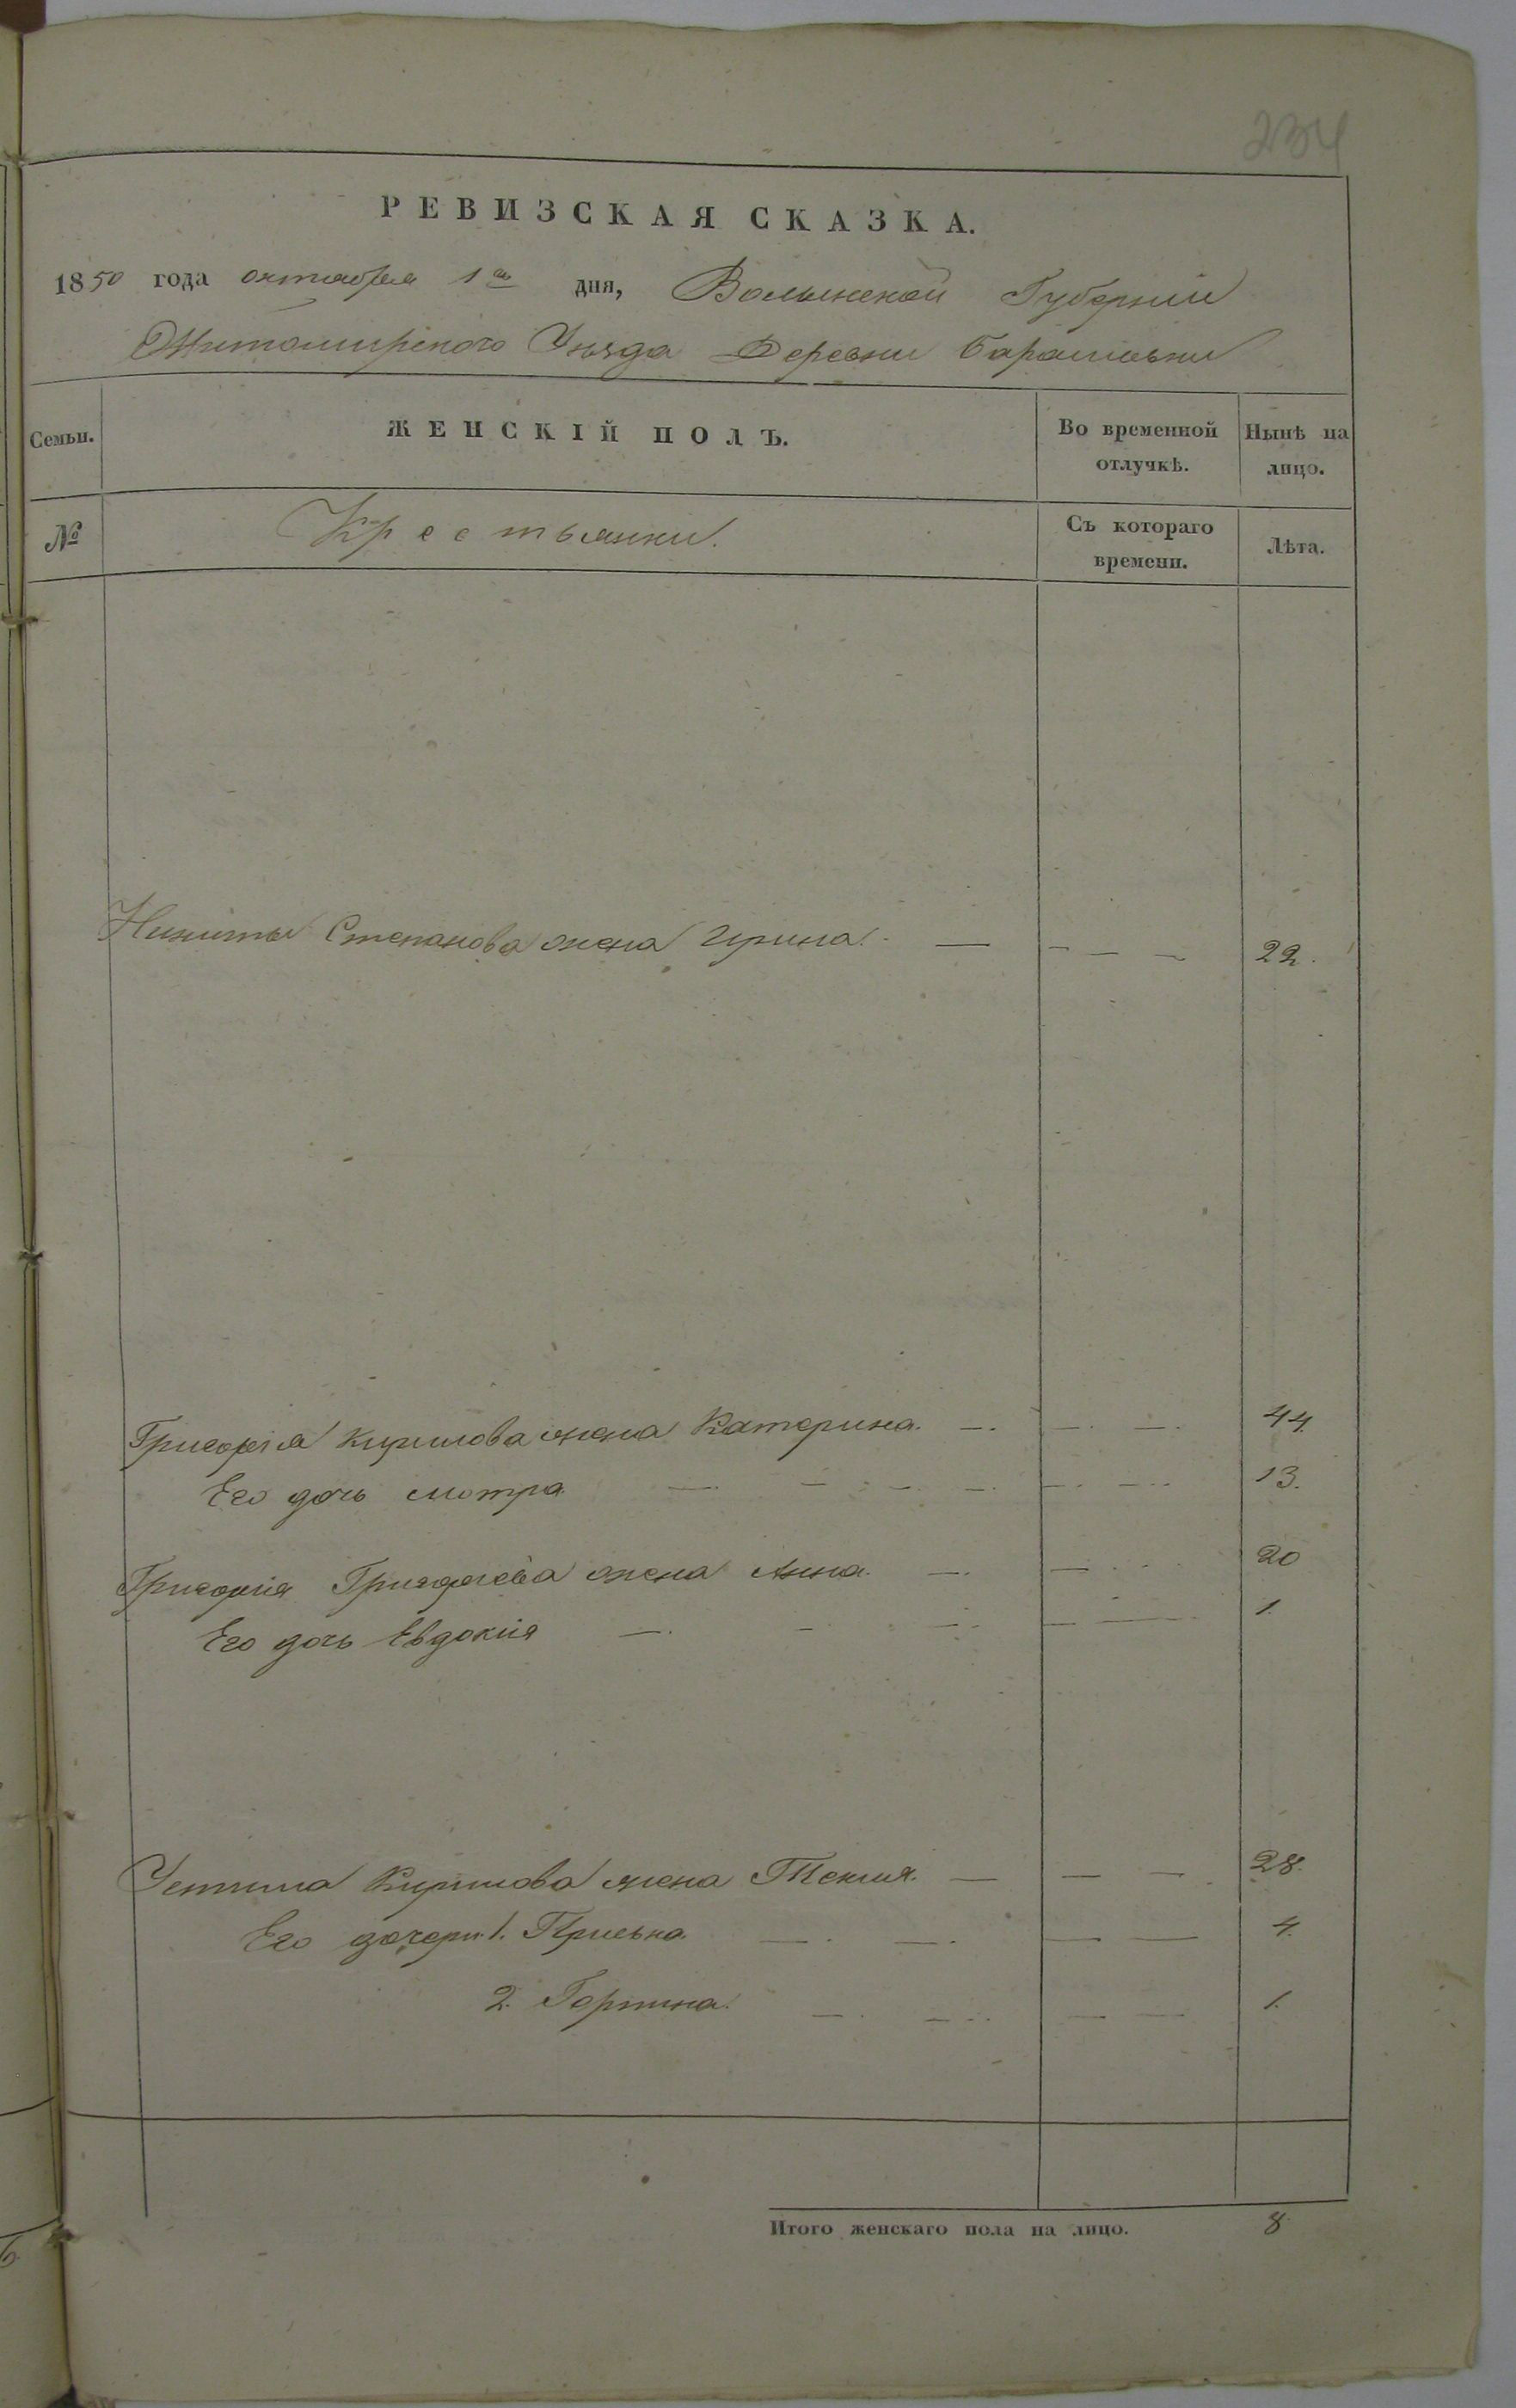 234
РЕВИЗСКАЯ СКАЗКА.
1850 года октября 1го дня, Волынской Губерніи
Житомирского Уѣзда Деревни Барашовки
Семьи. ЖЕНСКІЙ ПОЛЪ. Во временной отлучкѣ. Нынѣ на лицо.
№ Крестьянки. Съ котораго времени. Лѣта.
Никиты Степанова жена Ирина. — — — — 22.
Григорія Кирилова жена Катерина. — — — 44.
Его дочь Мотра — — — — — — 13.
Григорія Григорьева жена Анна. — — 20
Его дочь Евдокія — — — — — 1.
Устина Кирилова жена Текля. — — — 28.
Его дочери 1. Приська. — — — — 4.
2. Горпина. — — — — 1.
Итого женскаго пола на лицо. 8